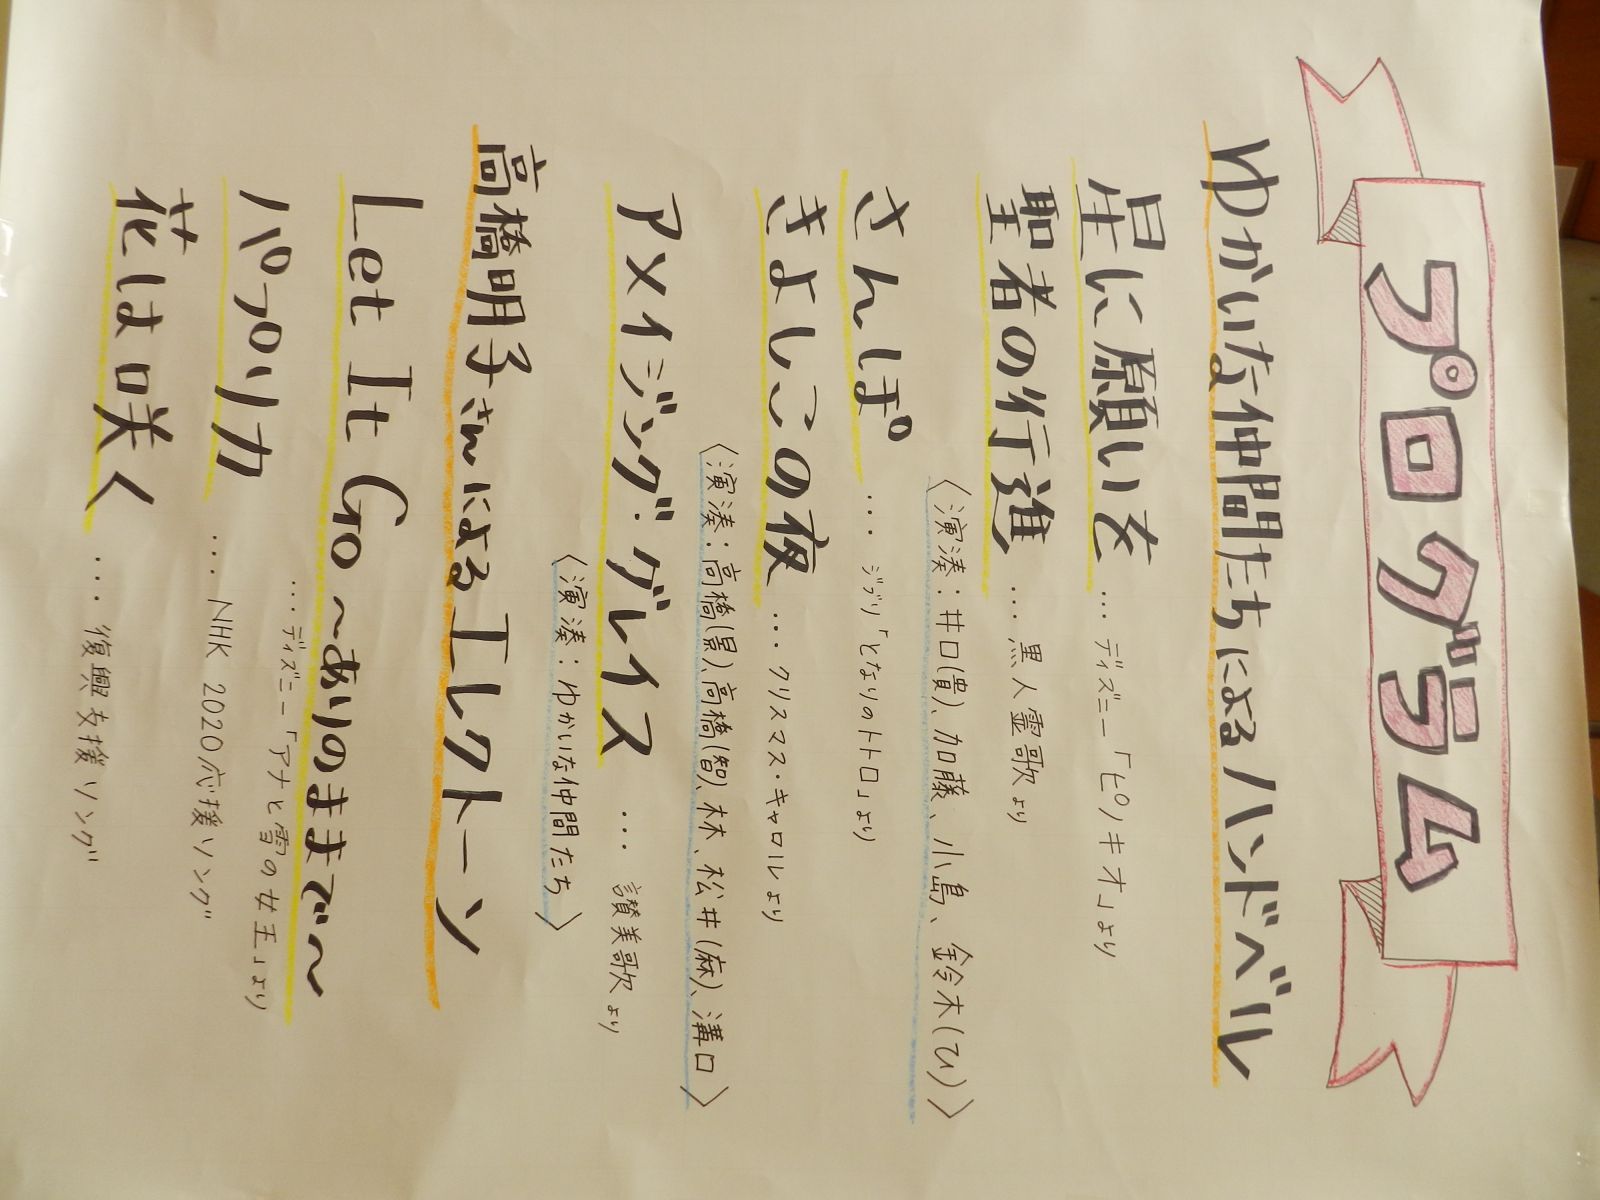 プログラム
ゆかいな仲間たちによるハンドベル
星に願いを … ディズニー「ピノキオ」より
聖者の行進 … 黒人霊歌より
〈演湊:井口(貴)、加藤、小島、鈴木(ひ)〉
さんぽ … ジブリ「となりのトトロ」より
きよしこの夜 … クリスマス・キャロルより
〈演湊:高橋(景)、高橋(智)、林、松井(麻)、溝口〉
アメイジング・グレイス … 讃美歌より
〈演湊:ゆかいな仲間たち〉
高橋明子さんによるエレクトーン
Let It Go 〜ありのままで〜
… ディズニー「アナと雪の女王」より
パプリカ … NHK 2020応援ソング
花は咲く … 復興支援ソング